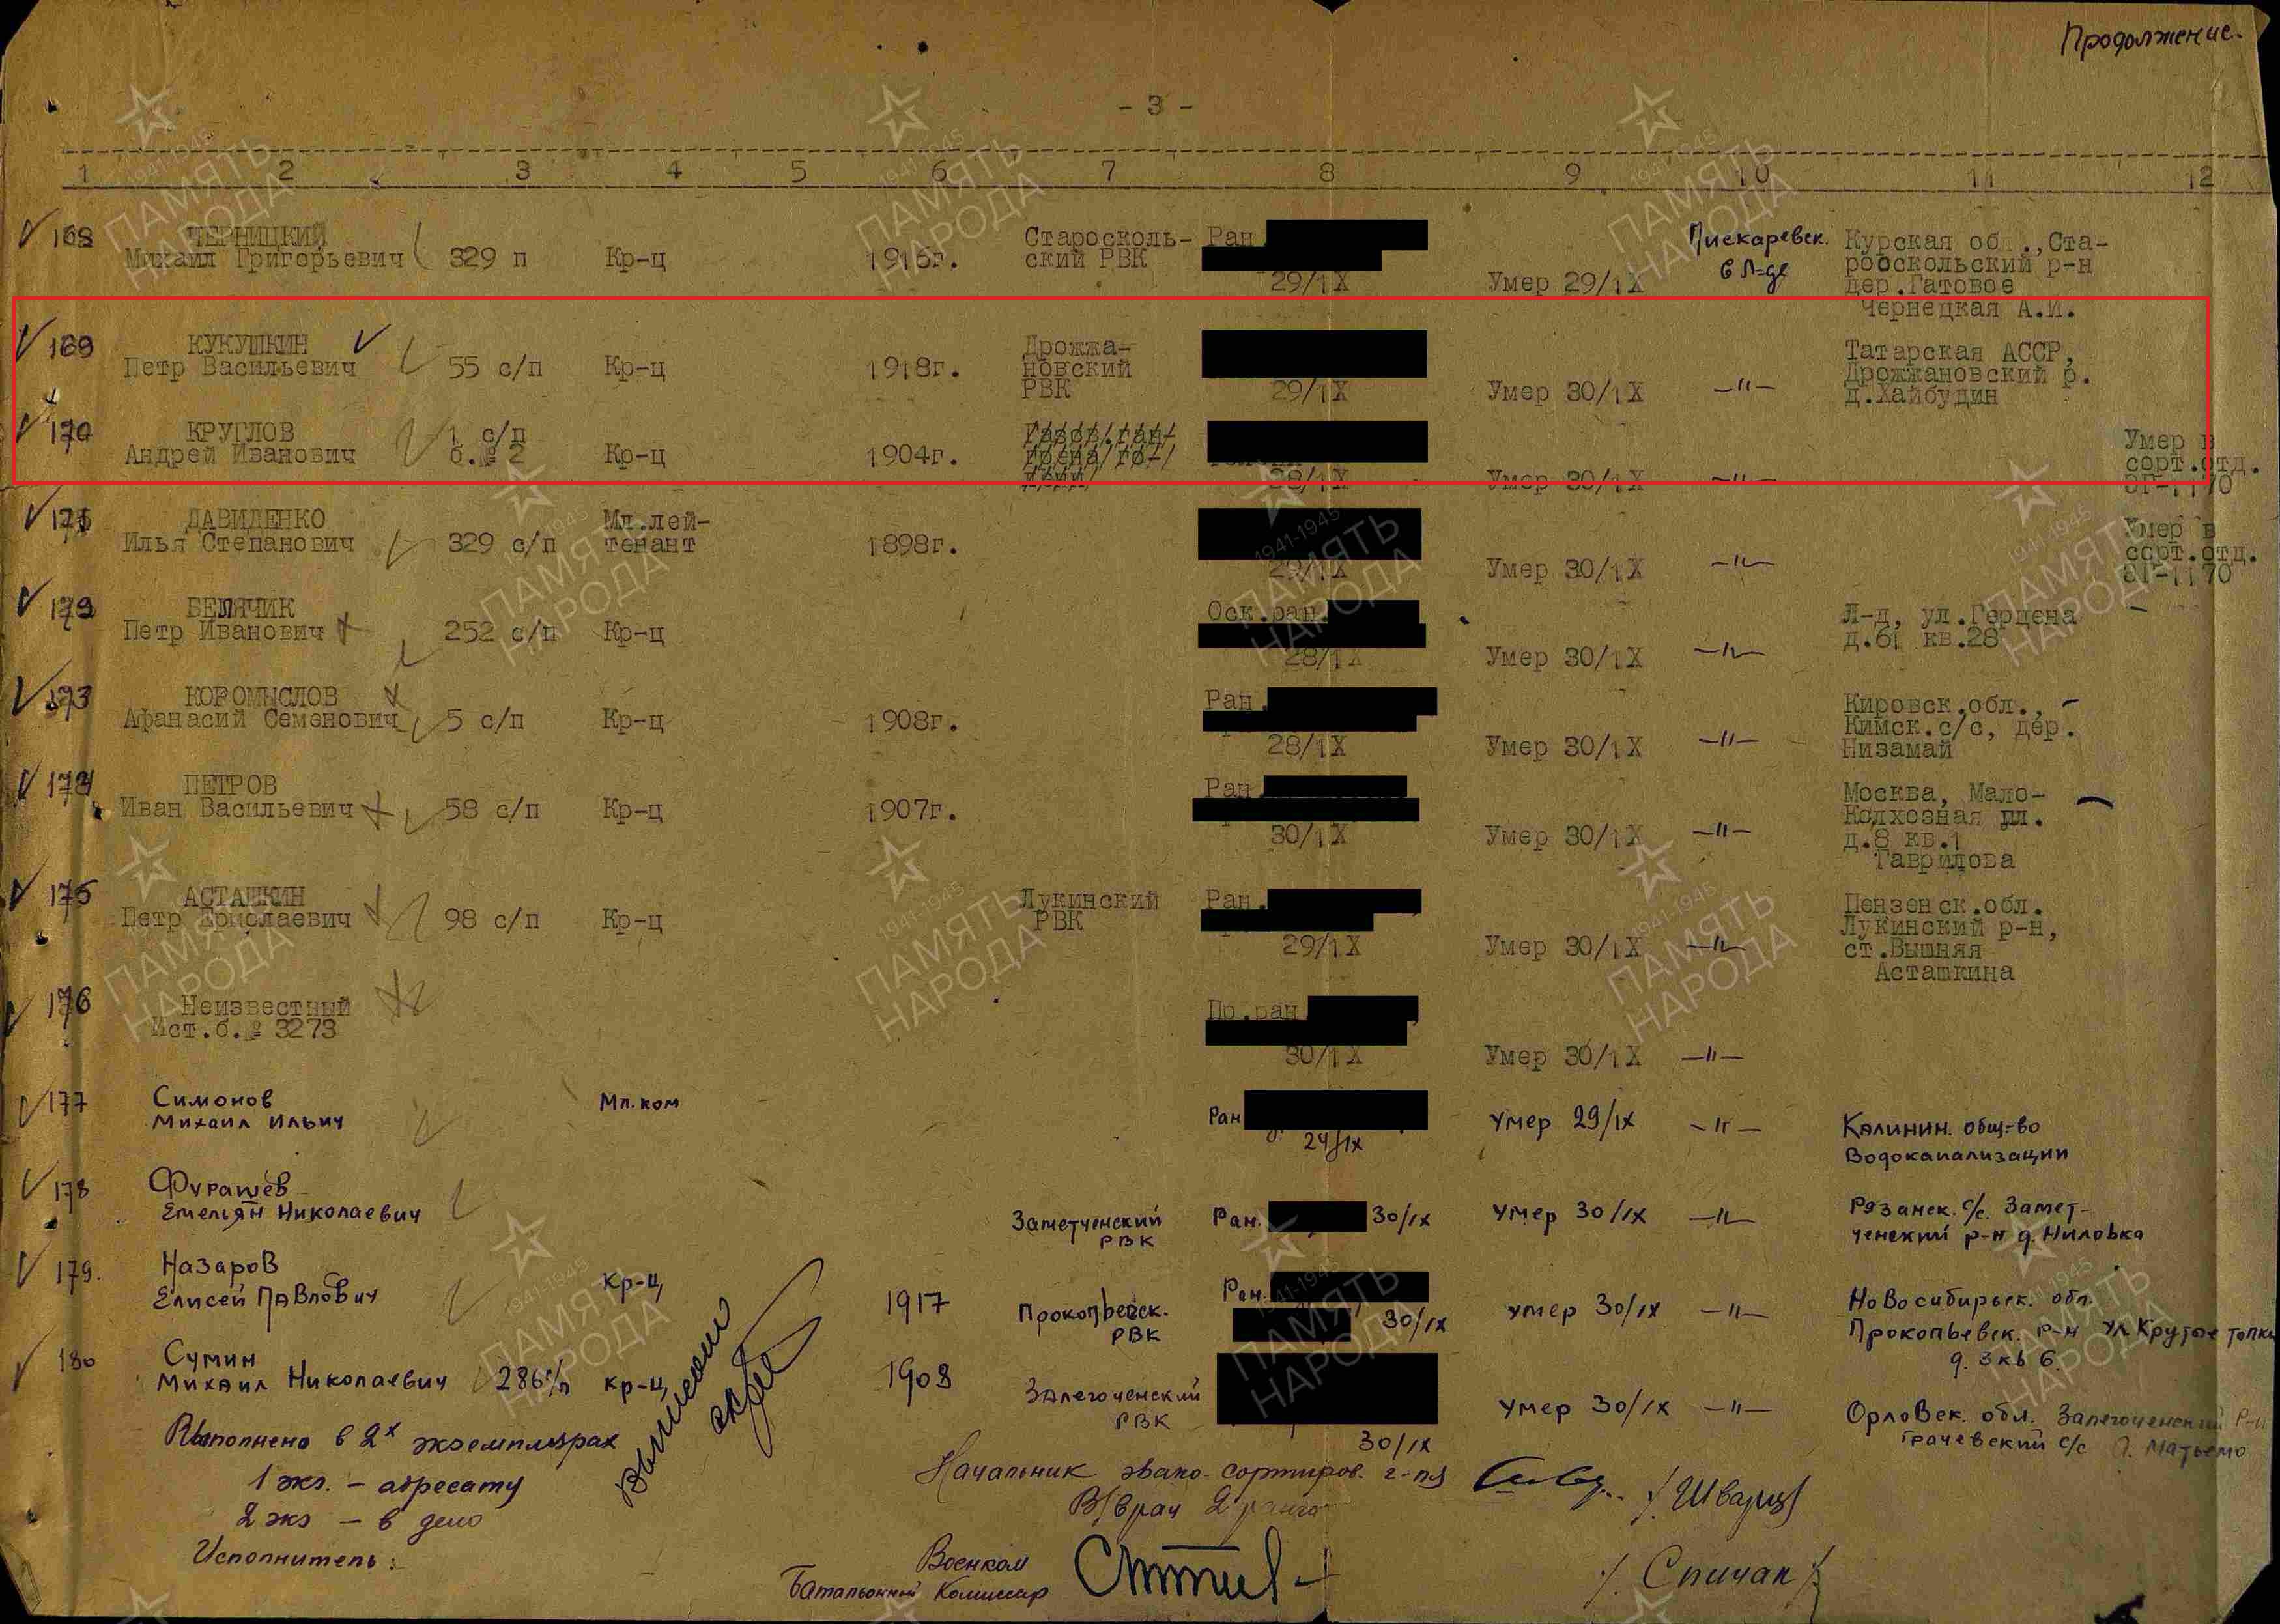 Продолжение.
- 3 -
1 2 3 4 5 6 7 8 9 10 11 12
168 ЧЕРНИЦКИЙ
Михаил Григорьевич 329 п Кр-ц 1916г. Староосколь-
ский РВК Ран.
29/IX Умер 29/IX Пискаревск.
в Л-де Курская об .,Ста-
рооскольский р-н
дер.Гатовое
Чернецкая А.И.
169 КУКУШКИН
Петр Васильевич 55 с/п Кр-ц 1918г. Дрожжа-
новский
РВК 29/IX Умер 30/IX -"- Татарская АССР,
Дрожжановский р.
д.Хайбудин
170 КРУГЛОВ
Андрей Иванович 1 с/п
б.№ 2 Кр-ц 1904г. 28/IX Умер 30/IX -"- Умер в
сорт.отд.
ЭГ-1170
171 ДАВИДЕНКО
Илья Степанович 329 с/п Мл.лей-
тенант 1898г. 29/IX Умер 30/IX -"- Умер в
сорт.отд.
ЭГ-1170
172 БЕЛЯЧИК
Петр Иванович 252 с/п Кр-ц Оск.ран.
28/IX Умер 30/IX -"- Л-д, ул.Герцена
д.61 кв.28
173 КОРОМЫСЛОВ
Афанасий Семенович 5 с/п Кр-ц 1908г. Ран.
28/IX Умер 30/IX -"- Кировск.обл.,
Кимск.с/с, дер.
Низамай
174 ПЕТРОВ
Иван Васильевич 58 с/п Кр-ц 1907г. Ран.
30/IX Умер 30/IX -"- Москва, Мало-
Колхозная пл.
д.8 кв.1
Гаврилова
175 АСТАШКИН
Петр Ермолаевич 98 с/п Кр-ц Лукинский
РВК Ран.
29/IX Умер 30/IX -"- Пензенск.обл.
Лукинский р-н,
ст.Вышняя
Асташкина
176 Неизвестный
Ист.б.№ 3273 Пр.ран.
30/IX Умер 30/IX -"-
177 Симонов
Михаил Ильич Мл.ком Ран
24/IX Умер 29/IX -"- Калинин. общ-во
Водоканализации
178 Фурашев
Емельян Николаевич Заметченский
РВК Ран. 30/IX Умер 30/IX -"- Рязанск. с/с. Замет-
ченский р-н д. Ниловка
179. Назаров
Елисей Павлович кр-ц 1917 Прокопьевск.
РВК Ран.
30/IX умер 30/IX -"- Новосибирск. обл.
Прокопьевск. р-н ул. Крутые топки
д. 3 кв 6.
180 Сумин
Михаил Николаевич 286 с/п кр-ц 1908 Залегоченский
РВК 30/IX умер 30/IX -"- Орловск. обл. Залегоченский р-н
Грачевский с/с
Выполнено в 2х экземплярах
1 экз. - адресату
2 экз - в дело
Исполнитель:
Выписан
Начальник эвако-сортиров. г-ля
В/врач 2 ранга /Шварц/
Военком
Батальонный Комиссар /Спичак/
1941-1945
ПАМЯТЬ
НАРОДА